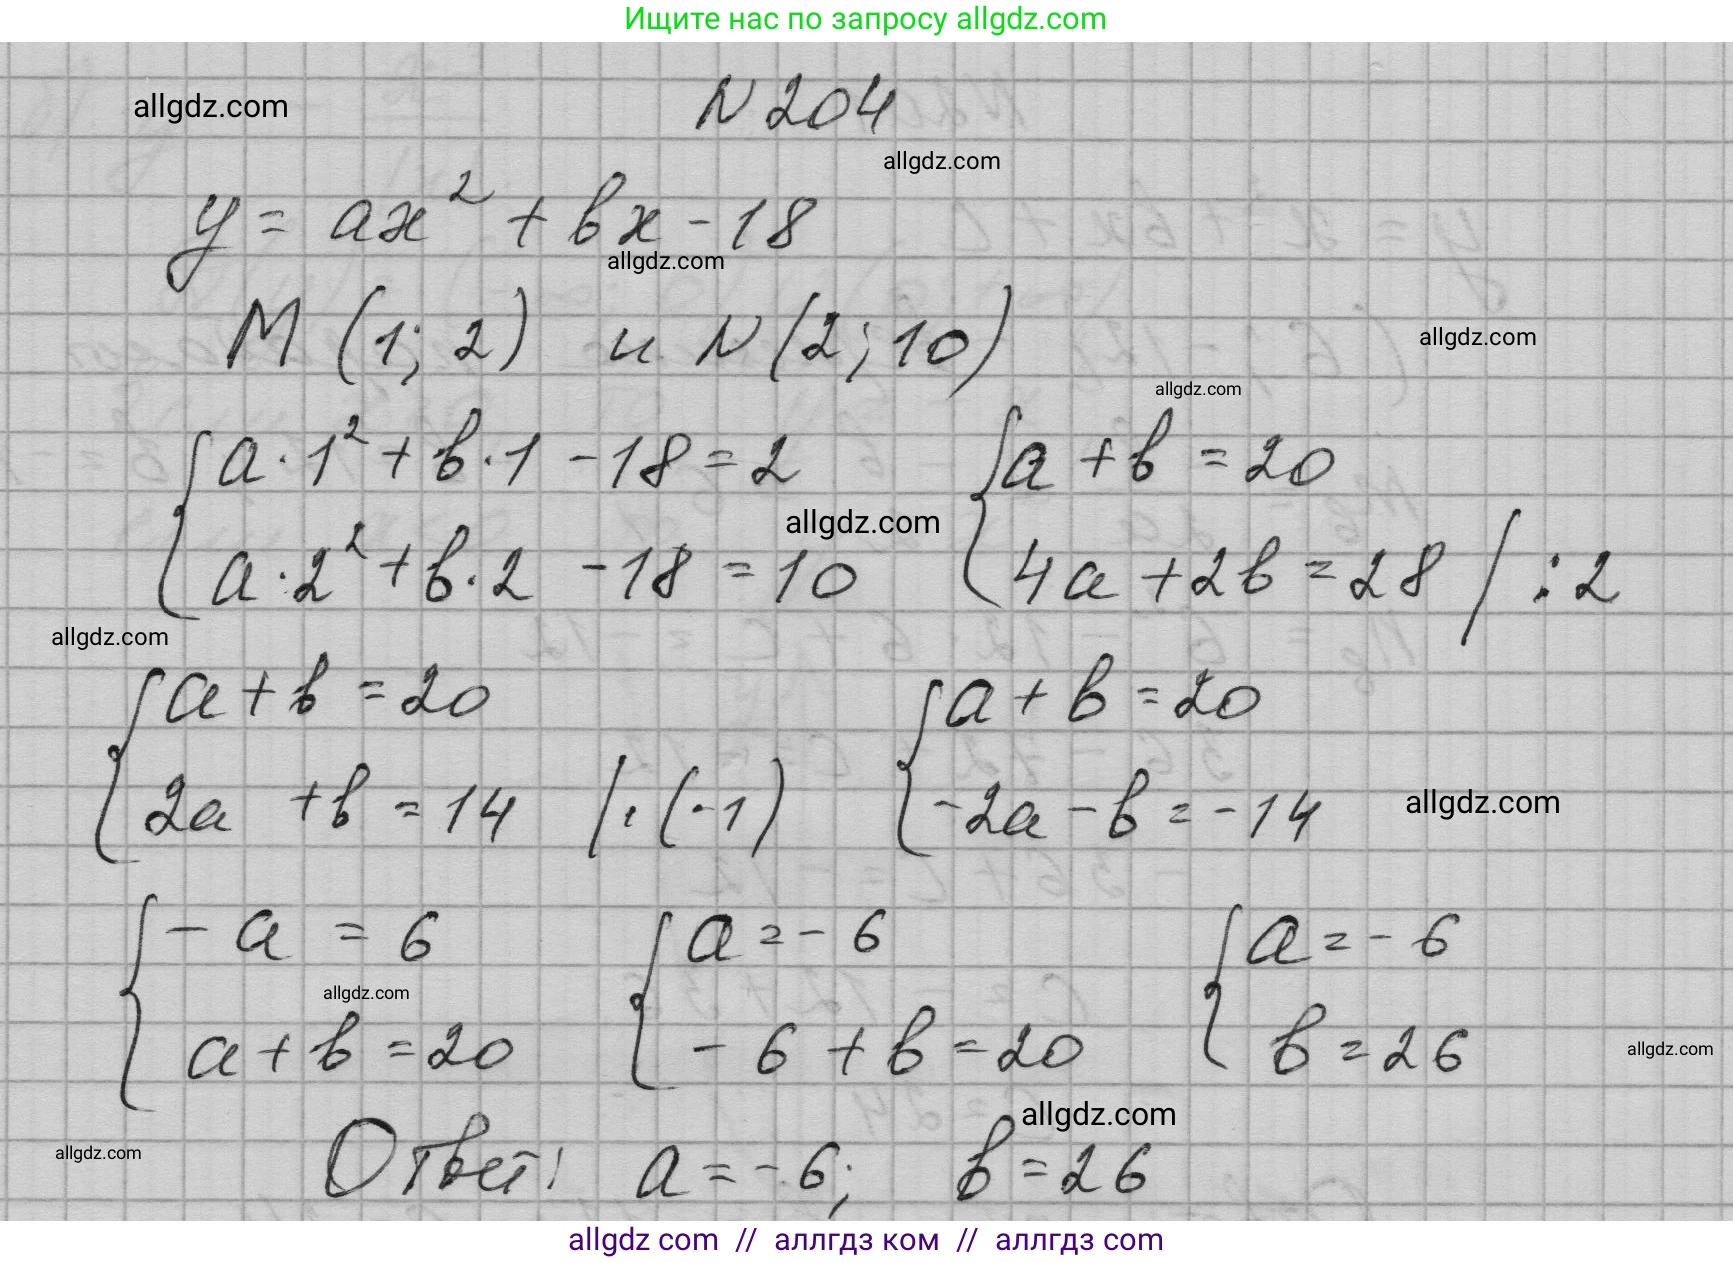 Ищите нас по запросу allgdz.com
allgdz.com
N 204
allgdz.com
y = ax² + bx - 18
allgdz.com
M (1; 2) и N (2; 10)
allgdz.com
allgdz.com
{ a·1² + b·1 - 18 = 2 { a + b = 20
allgdz.com
{ a·2² + b·2 - 18 = 10 { 4a + 2b = 28 / : 2
allgdz.com
{ a + b = 20 { a + b = 20
{ 2a + b = 14 / · (-1) { -2a - b = -14
allgdz.com
{ -a = 6 { a = -6 { a = -6
allgdz.com
{ a + b = 20 { -6 + b = 20 { b = 26
allgdz.com
allgdz.com
allgdz.com
Ответ: a = -6; b = 26
allgdz com // аллгдз ком // аллгдз com